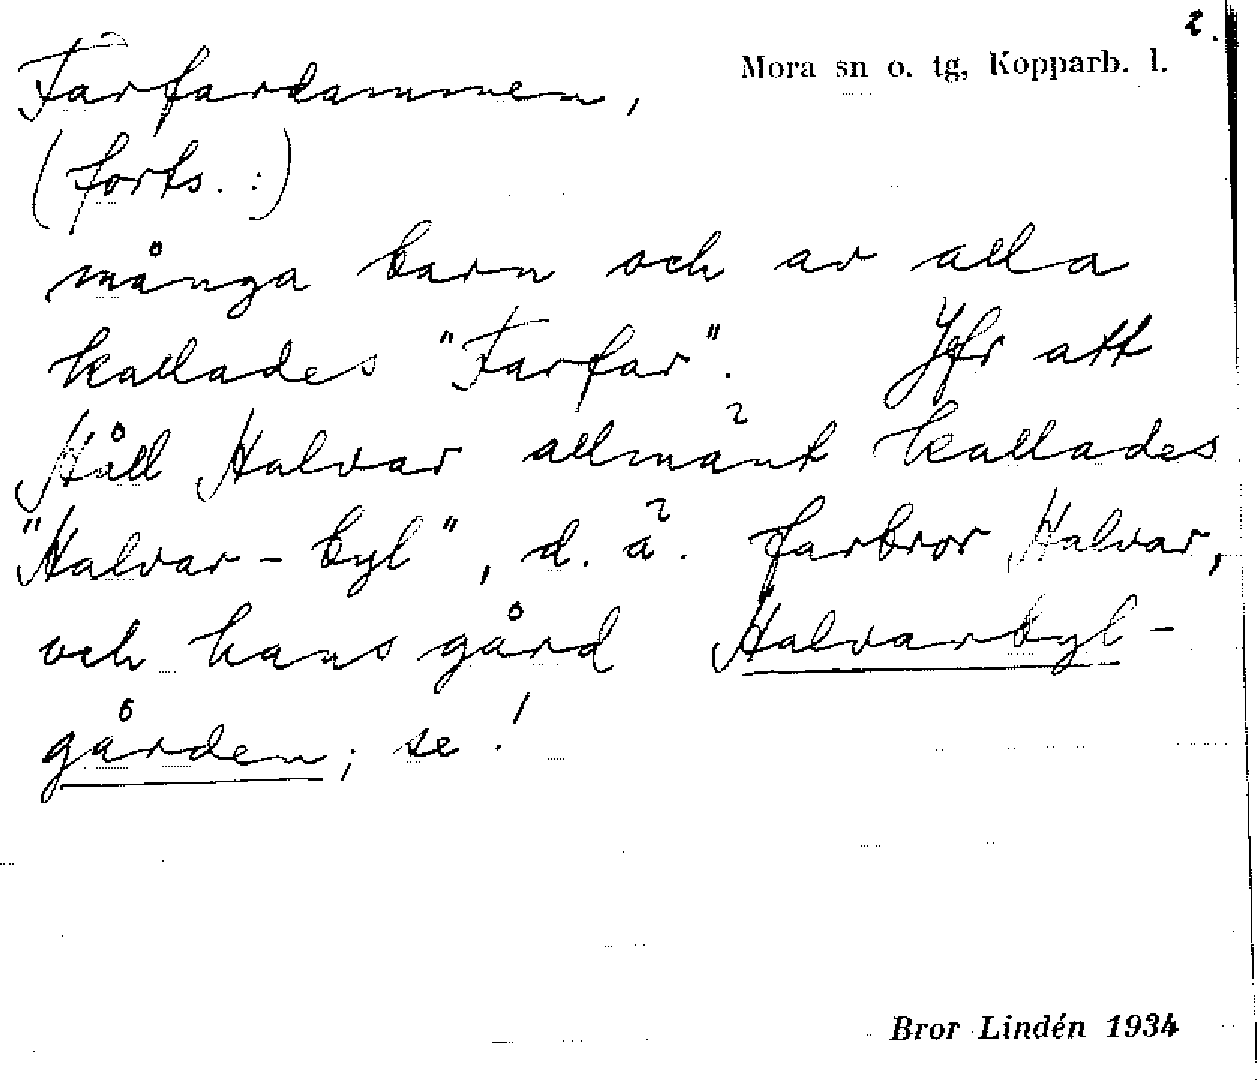 2.
Mora sn o. tg, Kopparb. l.
Farfardammen,
(forts.:)
många barn och av alla
kallades "Farfar". Jfr att
Håll Halvar allmänt kallades
"Halvar-byl", d.ä. farbror Halvar,
och hans gård Halvarbyl-
gården; se!
Bror Lindén 1934